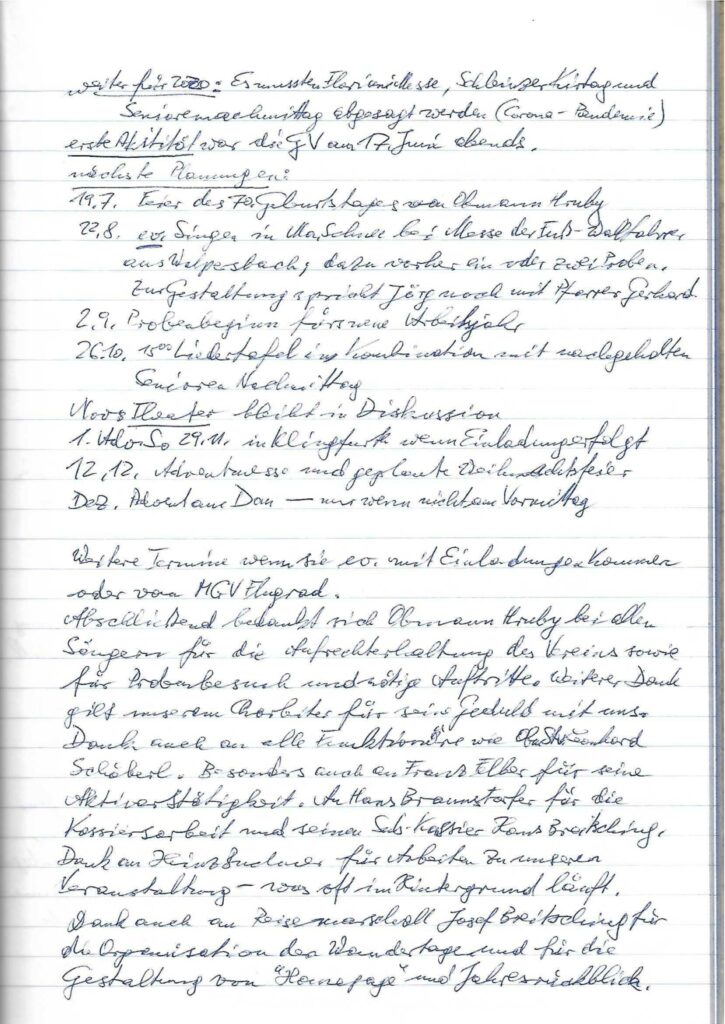 weiter für 2020: Es mussten Florianimesse, Schleinzer Kirtag und
Seniorennachmittag abgesagt werden (Corona-Pandemie)
erste Aktität war die GV am 17. Juni abends.
nächste Planungen:
19.7. Feier des 70. Geburtstages von Obmann Hruby
22.8. ev. Singen in MaSchnee bei Messe der Fuß-Wallfahrer
aus Walpersbach; dazu vorher ein oder zwei Proben.
Zur Gestaltung spricht Jörg noch mit Pfarrer Gerhard.
2.9. Probenbeginn fürs neue Arbeitsjahr
26.10. 1500 Liedertafel in Kombination mit nachgeholten
Senioren Nachmittag
Theater bleibt in Diskussion
1. Adv. So 29.11. in Klingfurth wenn Einladung erfolgt
12.12. Adventmesse und geplante Weihnachtsfeier
Dez. Advent am Dom — nur wenn nicht am Vormittag
Weitere Termine wenn sie ev. mit Einladungen kommen
oder vom MGV Flugrad.
Abschließend bedankt sich Obmann Hruby bei allen
Sängern für die Aufrechterhaltung des Vereins sowie
für Probenbesuch und nötige Auftritte. Weiterer Dank
gilt unserem Chorleiter für seine Geduld mit uns.
Dank auch an alle Funktionäre wie
Schöberl. Besonders auch an Franz Elber für seine
Aktivarstätigkeit. An Hans Braunstorfer für die
Kassiersarbeit und seinen Sub-Kassier Hans Breitsching.
Dank an Heinz Buchner für Arbeiten zu unseren
Veranstaltung – was oft im Hintergrund läuft.
Dank auch an Reisemarschall Josef Breitsching für
die Organisation der Wandertage und für die
Gestaltung von "Homepage" und Jahresrückblick.